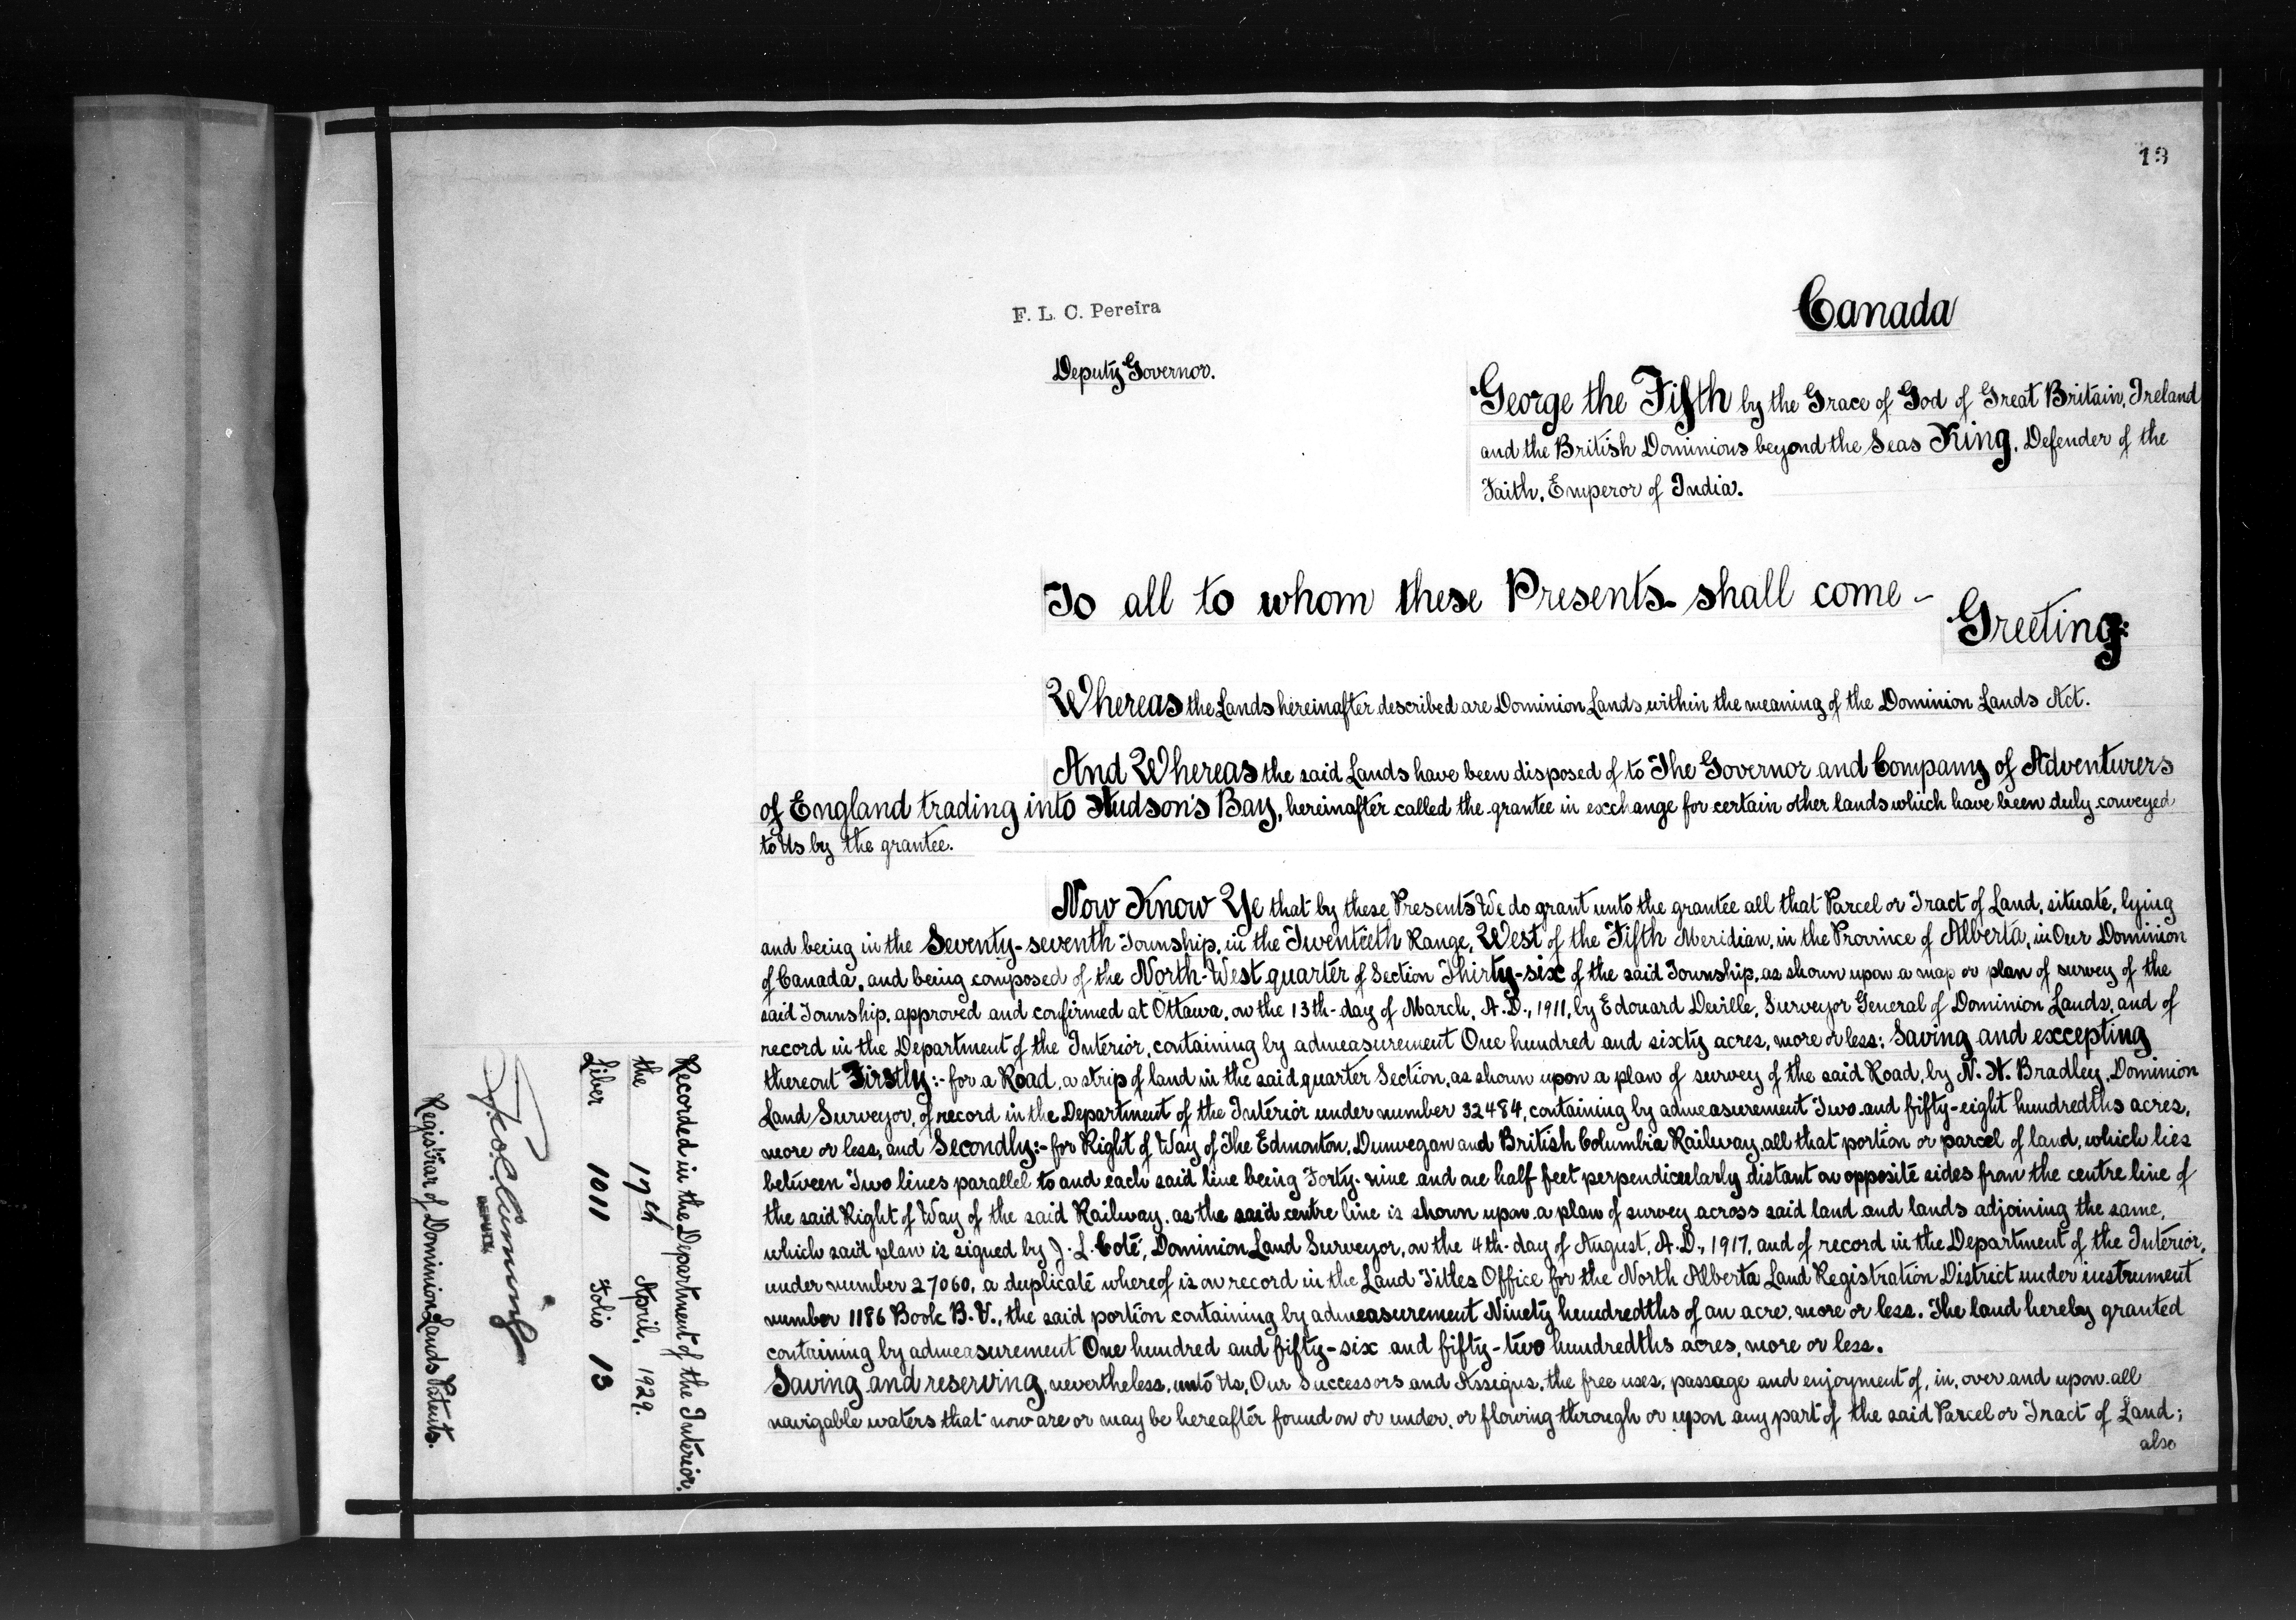 13
Canada
F. L. C. Pereira
Deputy Governor.
George the Fifth by the Grace of God of Great Britain, Ireland
and the British Dominions beyond the Seas King, Defender of the
Faith, Emperor of India.
To all to whom these Presents shall come -
Greeting:
Whereas the Lands hereinafter described are Dominion Lands within the meaning of the Dominion Lands Act.
And Whereas the said Lands have been disposed of to The Governor and Company of Adventurers
of England trading into Hudson's Bay, hereinafter called the grantee in exchange for certain other lands which have been duly conveyed
to Us by the grantee.
Now Know Ye that by these Presents We do grant unto the grantee all that Parcel or Tract of Land, situate, lying
and being in the Seventy-seventh Township, in the Twentieth Range, West of the Fifth Meridian, in the Province of Alberta, in Our Dominion
of Canada, and being composed of the North-West quarter of Section Thirty-six of the said Township, as shown upon a map or plan of survey of the
said Township, approved and confirmed at Ottawa, on the 13th day of March, A.D., 1911, by Edouard Deville, Surveyor General of Dominion Lands, and of
record in the Department of the Interior, containing by admeasurement One hundred and sixty acres, more or less: Saving and excepting
thereout Firstly:- for a Road, a strip of land in the said quarter Section, as shown upon a plan of survey of the said Road, by N. H. Bradley, Dominion
Land Surveyor, of record in the Department of the Interior under number 32484, containing by admeasurement Two and fifty-eight hundredths acres,
more or less, and Secondly:- for Right of Way of The Edmonton, Dunvegan and British Columbia Railway, all that portion or parcel of land, which lies
between Two lines parallel to and each said line being Forty-nine and one half feet perpendicularly distant on opposite sides from the centre line of
the said Right of Way of the said Railway, as the said centre line is shown upon a plan of survey across said land and lands adjoining the same,
which said plan is signed by J. L. Coté, Dominion Land Surveyor, on the 4th day of August, A.D., 1917, and of record in the Department of the Interior,
under number 27060, a duplicate whereof is on record in the Land Titles Office for the North Alberta Land Registration District under instrument
number 1186 Book B.V., the said portion containing by admeasurement Ninety hundredths of an acre, more or less. The land hereby granted
containing by admeasurement One hundred and fifty-six and fifty-two hundredths acres, more or less.
Saving and reserving, nevertheless, unto Us, Our Successors and Assigns, the free uses, passage and enjoyment of, in, over and upon all
navigable waters that now are or may be hereafter found on or under, or flowing through or upon any part of the said Parcel or Tract of Land;
also
Recorded in the Department of the Interior,
the 17th April, 1929.
Liber 1011 Folio 13
DEPUTY
Registrar of Dominion Lands Patents.